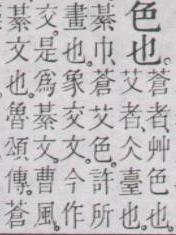 色也。
蒼者、艸色也。
艾者、仌臺也。
綦巾、蒼艾色。許所
畫也。象交文。今作
交。是爲綦文。曹風。
綦文也。魯頌傳。蒼